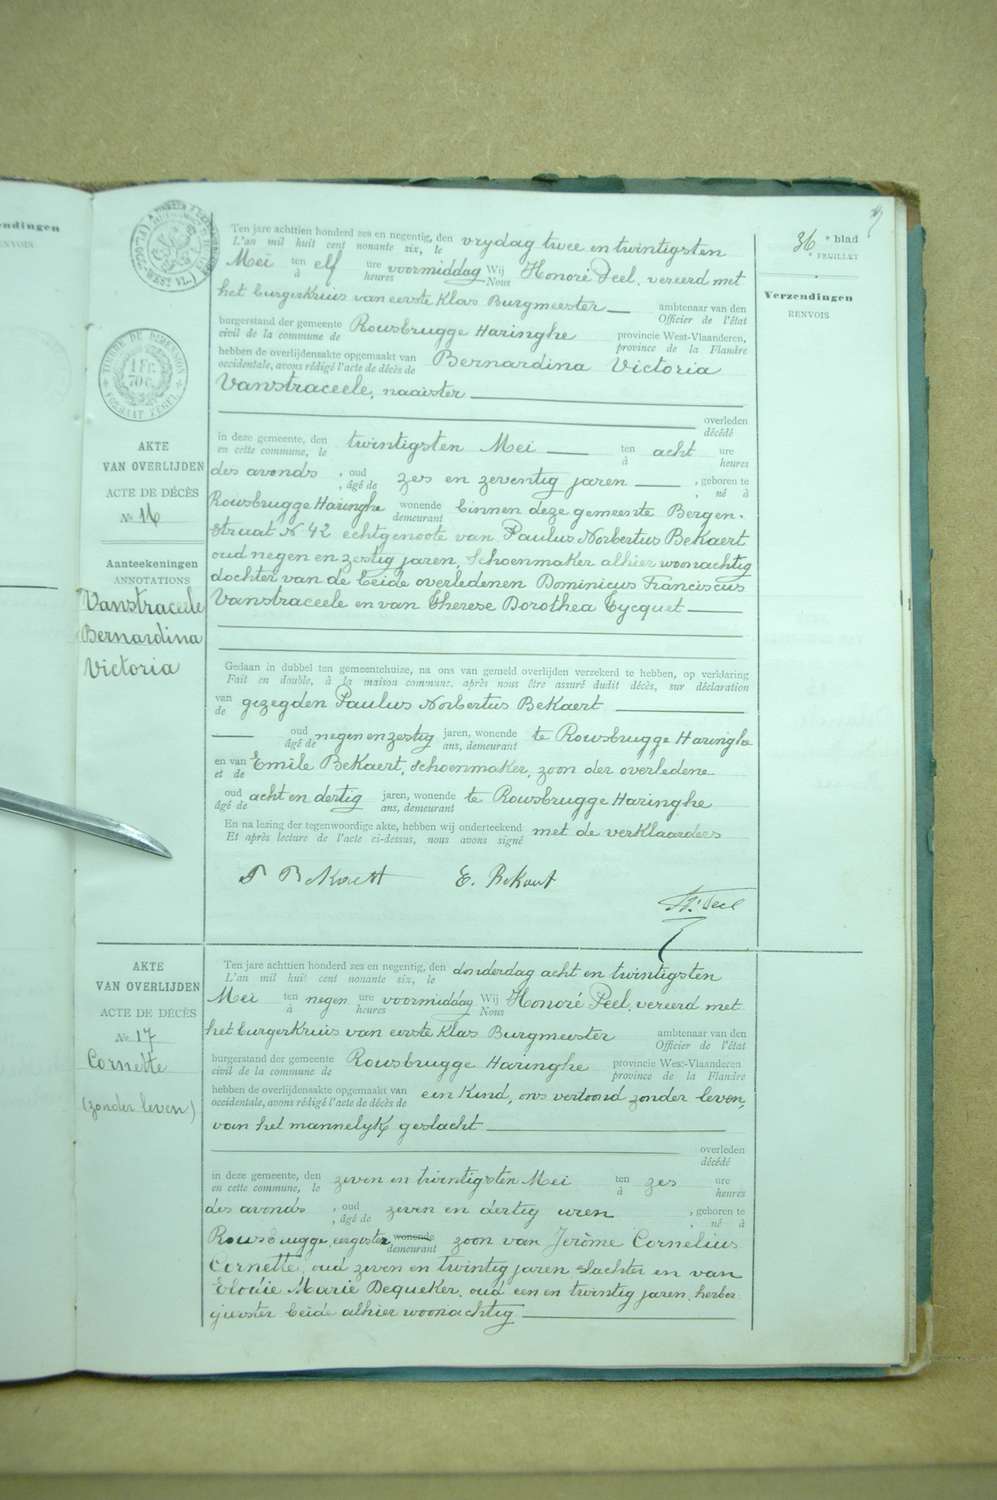 36 e blad
e FEUILLET
Verzendingen
RENVOIS
Ten jare achttien honderd zes en negentig, den vrydag twee en twintigsten
L'an mil huit cent nonante six, le
Mei ten elf ure voormiddag Wij Honoré Peel, vereerd met
à heures Nous
het burgerkruis van eerste Klas Burgmeester ambtenaar van den
Officier de l'état
burgerstand der gemeente Rousbrugge Haringhe provincie West-Vlaanderen,
civil de la commune de province de la Flandre
hebben de overlijdensakte opgemaakt van Bernardina Victoria
occidentale, avons rédigé l'acte de décès de
Vanstraceele, naaister
overleden
décédé
TIMBRE DE DIMENSION
1 FR.
70 C.
AKTE
VAN OVERLIJDEN
ACTE DE DÉCÈS
No 16
Aanteekeningen
ANNOTATIONS
Vanstraceele
Bernardina
Victoria
in deze gemeente, den twintigsten Mei ten acht ure
en cette commune, le à heures
des avonds, oud zes en zeventig jaren, geboren te
, âgé de , né à
Rousbrugge Haringhe wonende binnen deze gemeente Bergen-
demeurant
straat N 42 echtgenoote van Paulus Norbertus Bekaert
oud negen en zestig jaren, schoenmaker alhier woonachtig
dochter van de beide overledenen Dominicus Franciscus
Vanstraceele en van Therese Dorothea Tycquet
Gedaan in dubbel ten gemeentehuize, na ons van gemeld overlijden verzekerd te hebben, op verklaring
Fait en double, à la maison commune, après nous être assuré dudit décès, sur déclaration
van gezegden Paulus Norbertus Bekaert
de
oud negen en zestig jaren, wonende te Rousbrugge Haringhe
âgé de ans, demeurant
en van Emile Bekaert, schoenmaker, zoon der overledene
et de
oud acht en dertig jaren, wonende te Rousbrugge Haringhe
âgé de ans, demeurant
En na lezing der tegenwoordige akte, hebben wij onderteekend met de verklaarders
Et après lecture de l'acte ci-dessus, nous avons signé
P Bekaert E. Bekaert
H. Peel
AKTE
VAN OVERLIJDEN
ACTE DE DÉCÈS
No 17
Cornette
(zonder leven)
Ten jare achttien honderd zes en negentig, den donderdag acht en twintigsten
L'an mil huit cent nonante six, le
Mei ten negen ure voormiddag Wij Honoré Peel, vereerd met
à heures Nous
het burgerkruis van eerste Klas Burgmeester ambtenaar van den
Officier de l'état
burgerstand der gemeente Rousbrugge Haringhe provincie West-Vlaanderen
civil de la commune de province de la Flandre
hebben de overlijdensakte opgemaakt van een kind, ons vertoond zonder leven,
occidentale, avons rédigé l'acte de décès de
van het mannelyk geslacht
overleden
décédé
in deze gemeente, den zeven en twintigsten Mei ten zes ure
en cette commune, le à heures
des avonds, oud zeven en dertig uren, geboren te
, âgé de , né à
Rousbrugge, eergister wonende zoon van Jerôme Cornelius
demeurant
Cornette, oud zeven en twintig jaren slachter en van
Elodie Marie Dequeker, oud een en twintig jaren, herber
gierster beide alhier woonachtig